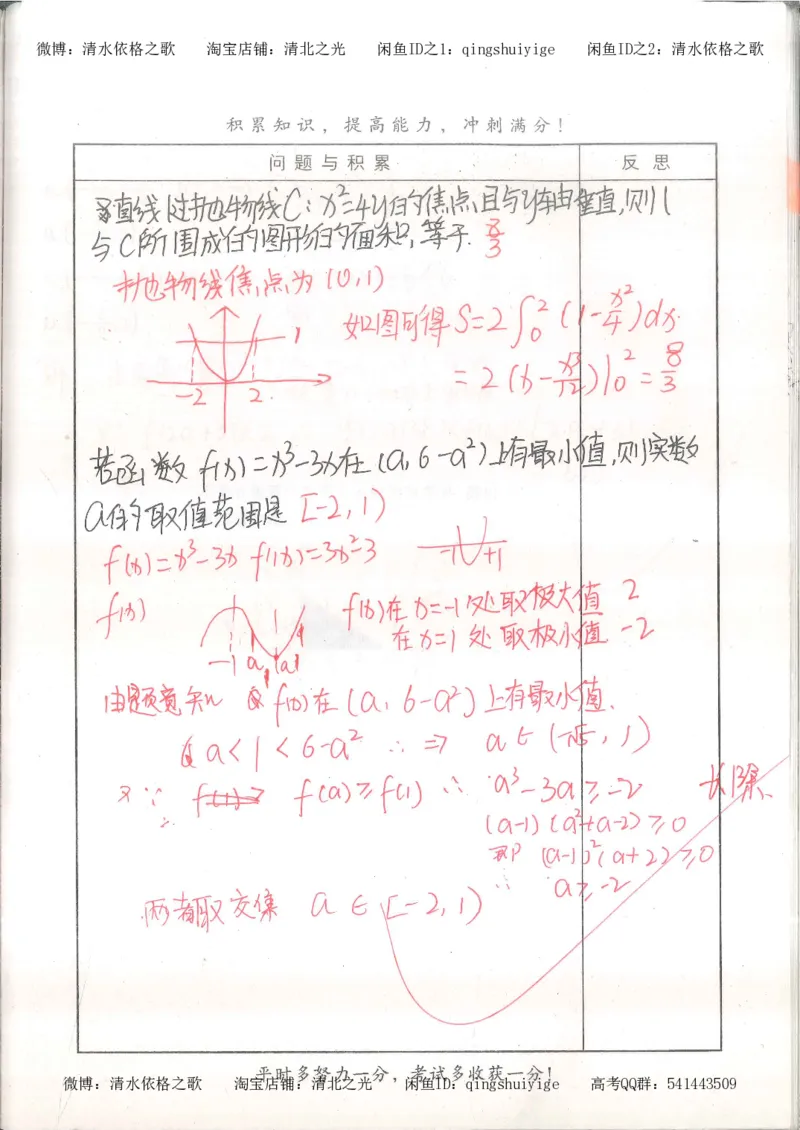 微博：清水依格之歌 淘宝店铺：清北之光 闲鱼ID之1：qingshuiyige 闲鱼ID之2：清水依格之歌
积累知识，提高能力，冲刺满分！
问题与积累 反思
直线l过抛物线C：x²=4y的焦点且与y轴垂直，则l
与C所围成的图形的面积，等于 8/3
抛物线焦点为(0,1)
1
-2 2
如图可得 S=2∫₀²(1-x²/4)dx
=2(x-x³/12)|₀²=8/3
若函数f(x)=x³-3x在(a,6-a²)上有最小值，则实数
a的取值范围是 [-2,1)
f(x)=x³-3x f'(x)=3x²-3
-1 +1
f(x)
-1 a 1 a
f(x)在x=-1处取极大值 2
在x=1处取极小值 -2
由题意知 f(x)在(a,6-a²)上有最小值.
a<1<6-a² ∴ ⇒ a∈(-√5,1)
又∵ f(a)≥f(1) ∴ a³-3a≥-2 长除
(a-1)(a²+a-2)≥0
即 (a-1)²(a+2)≥0
∴ a≥-2
两者取交集 a∈[-2,1)
平时多努力一分，考试多收获一分！
微博：清水依格之歌 淘宝店铺：清北之光 闲鱼ID：qingshuiyige 高考QQ群：541443509